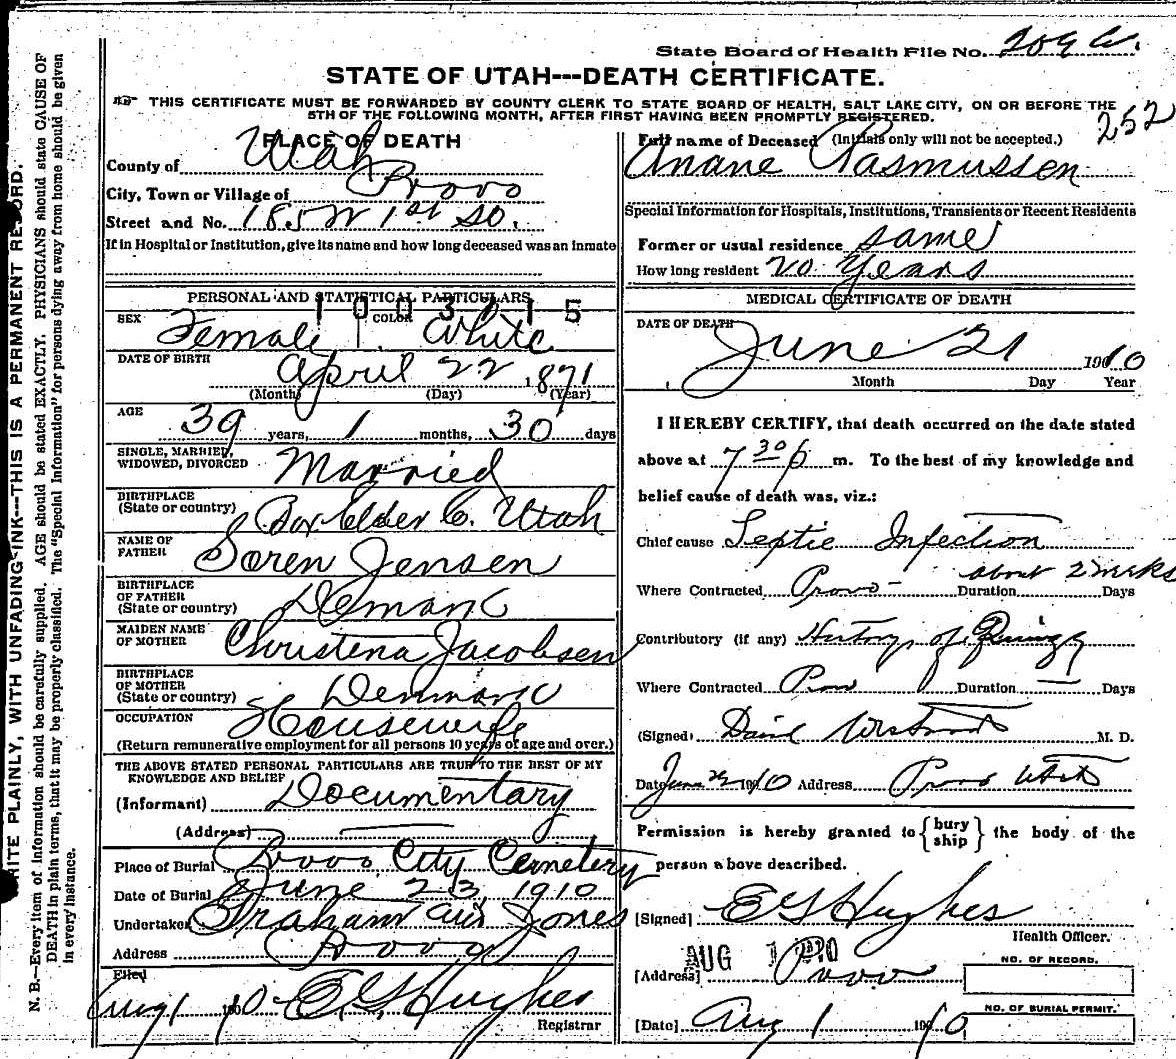 State Board of Health File No. 209 
STATE OF UTAH---DEATH CERTIFICATE.
THIS CERTIFICATE MUST BE FORWARDED BY COUNTY CLERK TO STATE BOARD OF HEALTH, SALT LAKE CITY, ON OR BEFORE THE
5TH OF THE FOLLOWING MONTH, AFTER FIRST HAVING BEEN PROMPTLY REGISTERED.
252
PLACE OF DEATH
County of Utah
City, Town or Village of Provo
Street and No. 185 W 1st So.
If in Hospital or Institution, give its name and how long deceased was an inmate
PERSONAL AND STATISTICAL PARTICULARS
1003715
SEX Female COLOR White
DATE OF BIRTH April 22, 1871
(Month) (Day) (Year)
AGE 39 years, 1 months, 30 days
SINGLE, MARRIED,
WIDOWED, DIVORCED Married
BIRTHPLACE
(State or country) Box Elder Co. Utah
NAME OF
FATHER Soren Jensen
BIRTHPLACE
OF FATHER
(State or country) Denmark
MAIDEN NAME
OF MOTHER Christena Jacobsen
BIRTHPLACE
OF MOTHER
(State or country) Denmark
OCCUPATION Housewife
(Return remunerative employment for all persons 10 years of age and over.)
THE ABOVE STATED PERSONAL PARTICULARS ARE TRUE TO THE BEST OF MY
KNOWLEDGE AND BELIEF
(Informant) Documentary
(Address)
Place of Burial Provo City Cemetery
Date of Burial June 23 1910
Undertaker Graham and Jones
Address Provo
Filed
Aug 1 1910 E G Hughes
Registrar
Full name of Deceased (Initials only will not be accepted.)
Anane Rasmussen
Special Information for Hospitals, Institutions, Transients or Recent Residents
Former or usual residence same
How long resident 20 Years
MEDICAL CERTIFICATE OF DEATH
DATE OF DEATH
June 21 1910
Month Day Year
I HEREBY CERTIFY, that death occurred on the date stated
above at 7 30 p m. To the best of my knowledge and
belief cause of death was, viz.:
Chief cause Septic Infection
Where Contracted Provo Duration about 2 weeks Days
Contributory (if any) History of Quinzy
Where Contracted Provo Duration Days
(Signed) David M. D.
Date June 1910 Address Provo Utah
Permission is hereby granted to {bury ship} the body of the
person above described.
[Signed] E G Hughes
Health Officer.
AUG 1 1910
[Address] Provo
NO. OF RECORD.
NO. OF BURIAL PERMIT.
[Date] Aug 1 1910
WRITE PLAINLY, WITH UNFADING INK---THIS IS A PERMANENT RECORD.
N. B.—Every item of Information should be carefully supplied. AGE should be stated EXACTLY. PHYSICIANS should state CAUSE OF
DEATH in plain terms, that it may be properly classified. The "Special Information" for persons dying away from home should be given
in every instance.